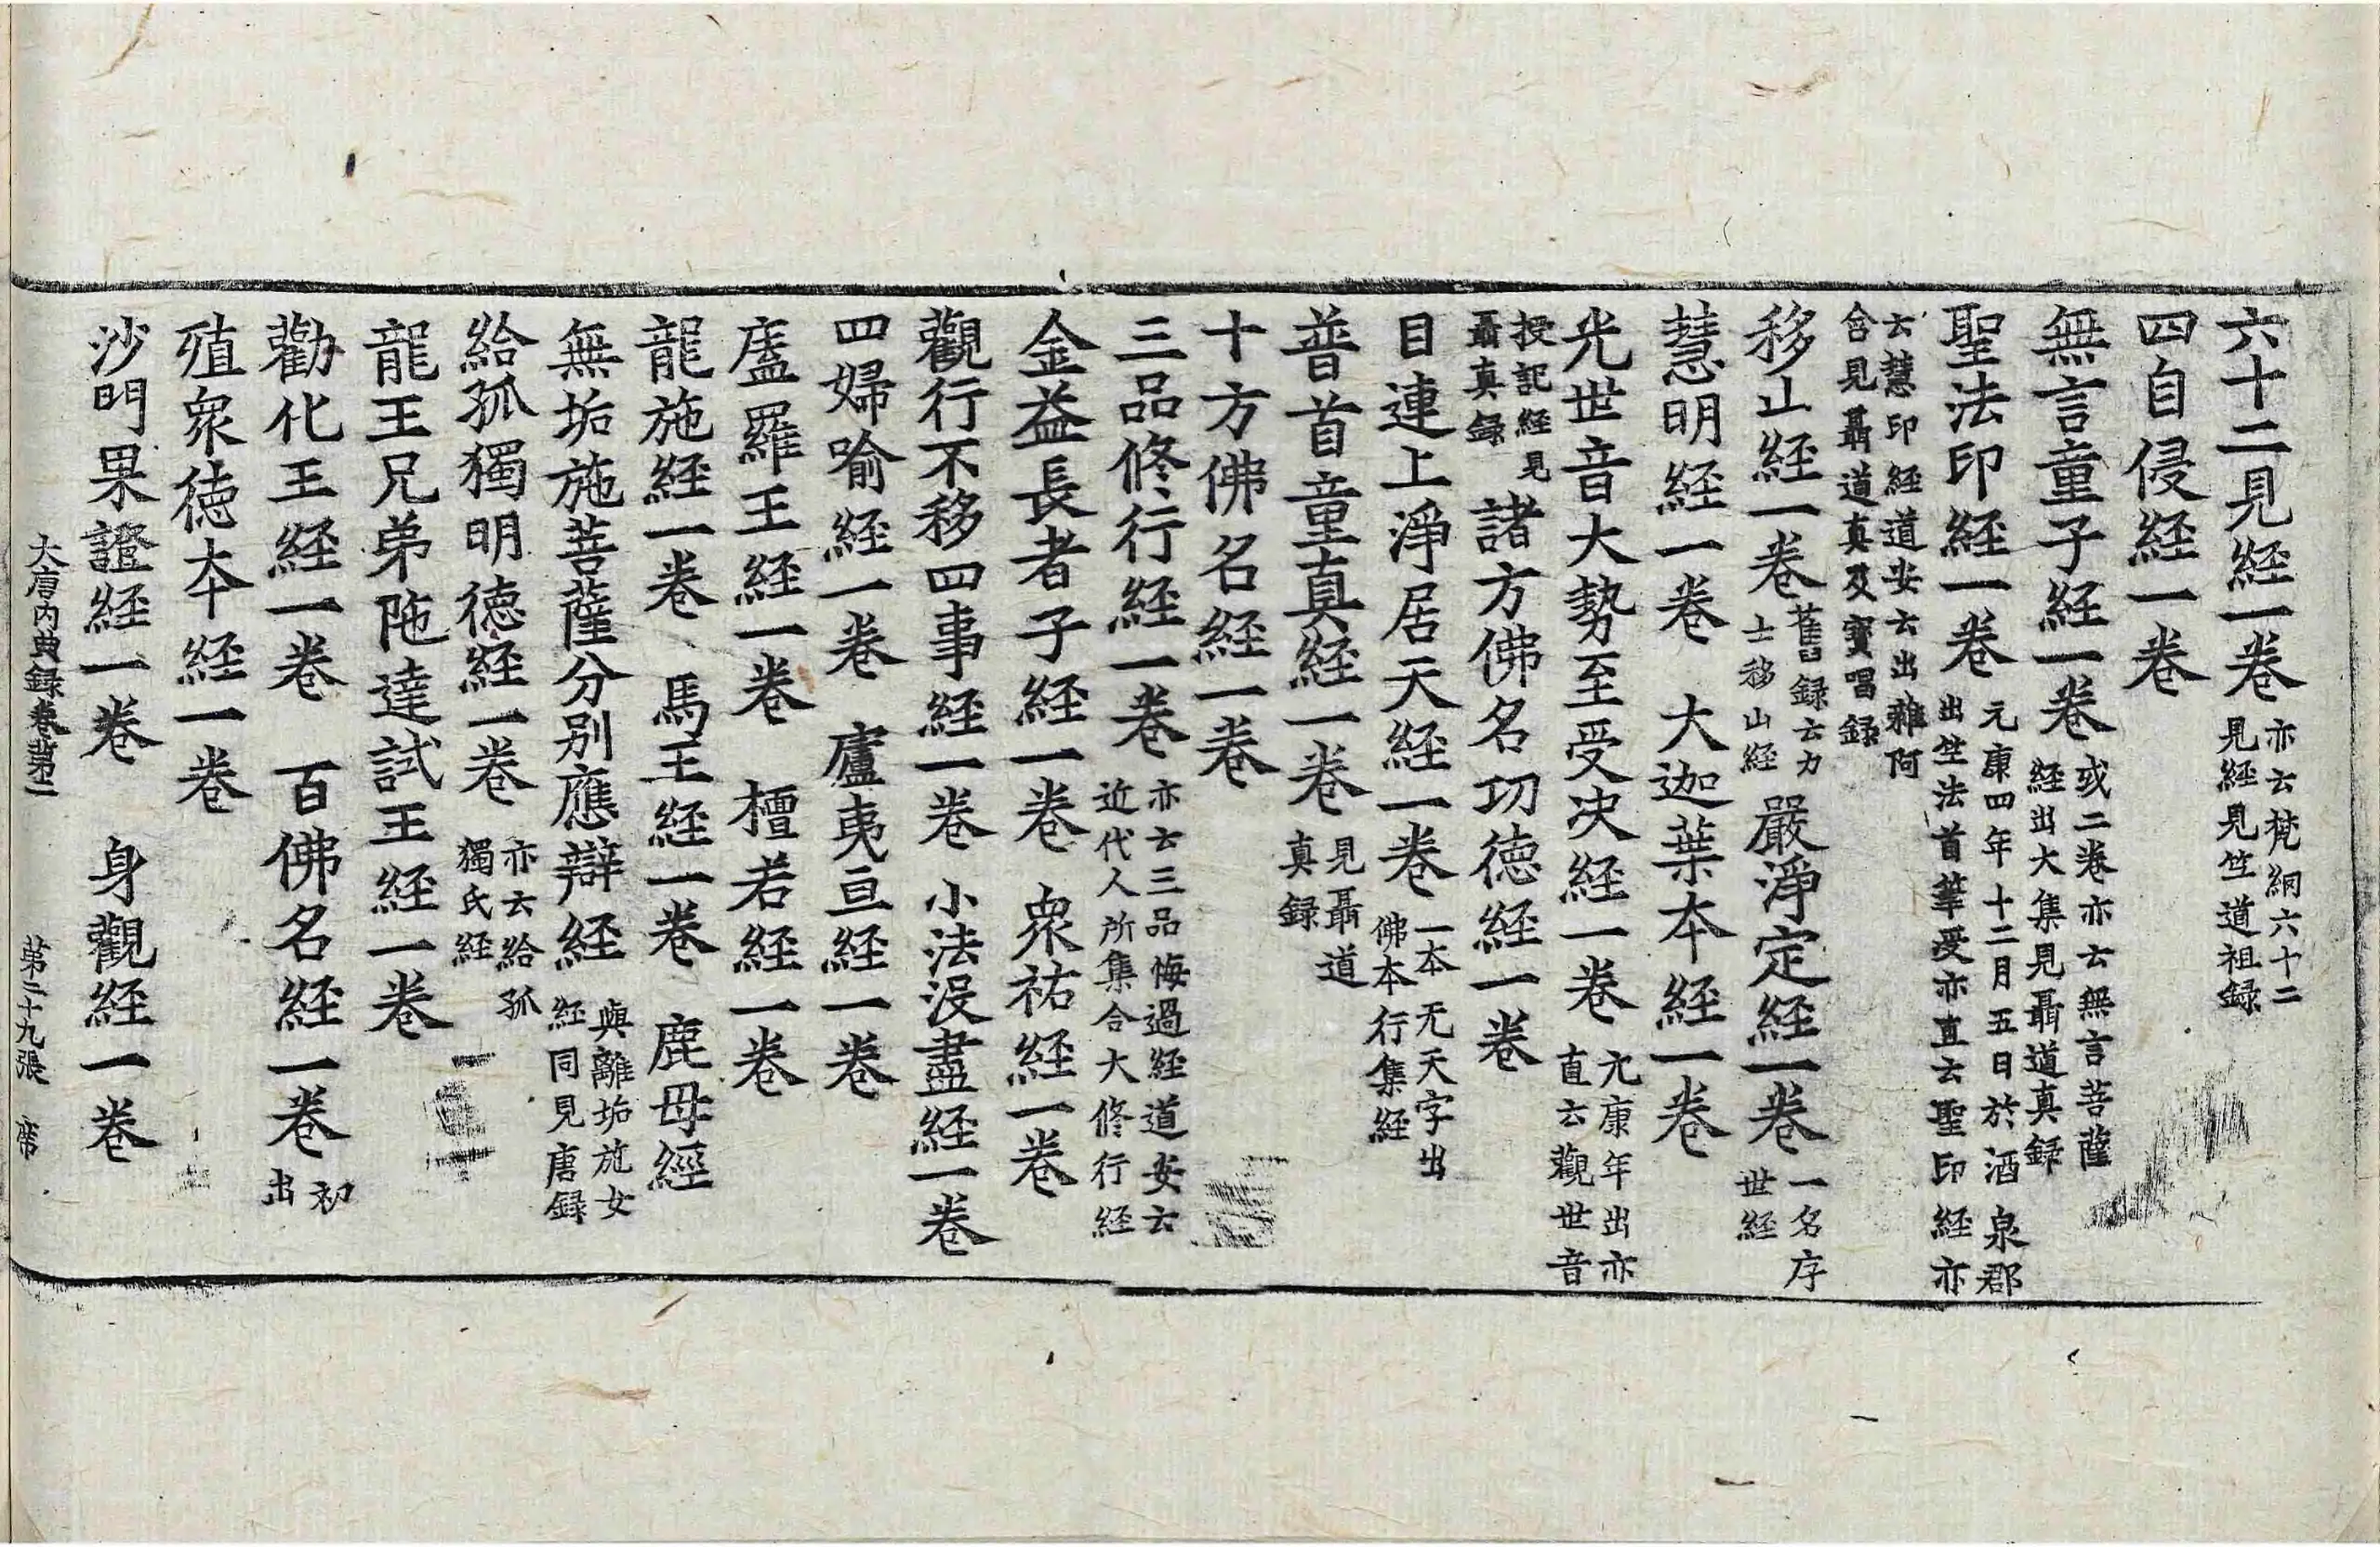 六十二見経一卷亦云梵網六十二見経見竺道祖録
四自侵経一卷
無言童子経一卷或二卷亦云無言菩薩経出大集見聶道真録
聖法印経一卷元康四年十二月五日於酒泉郡出竺法首筆受亦直云聖印経亦
云慧印経道安云出雜阿含見聶道真及寶唱録
移山経一卷舊録云力士移山経　嚴淨定経一卷一名序世経
慧明経一卷　大迦葉本経一卷
光世音大勢至受决経一卷元康年出亦直云觀世音
授記経見聶真録　諸方佛名功徳経一卷
目連上淨居天経一卷一本无天字出佛本行集経
普首童真経一卷見聶道真録
十方佛名経一卷
三品修行経一卷亦云三品悔過経道安云近代人所集合大修行経
金益長者子経一卷　衆祐経一卷
觀行不移四事経一卷　小法没盡経一卷
四婦喻経一卷　廬夷亘経一卷
廅羅王経一卷　檀若経一卷
龍施経一卷　馬王経一卷　鹿母經
無垢施菩薩分别應辯経與離垢施女経同見唐録
給孤獨明徳経一卷亦云給孤獨氏経
龍王兄弟陁達試王経一卷
勸化王経一卷　百佛名経一卷初出
殖衆徳本経一卷
沙門果證経一卷　身觀経一卷
大唐内典録卷第二　第二十九張　席